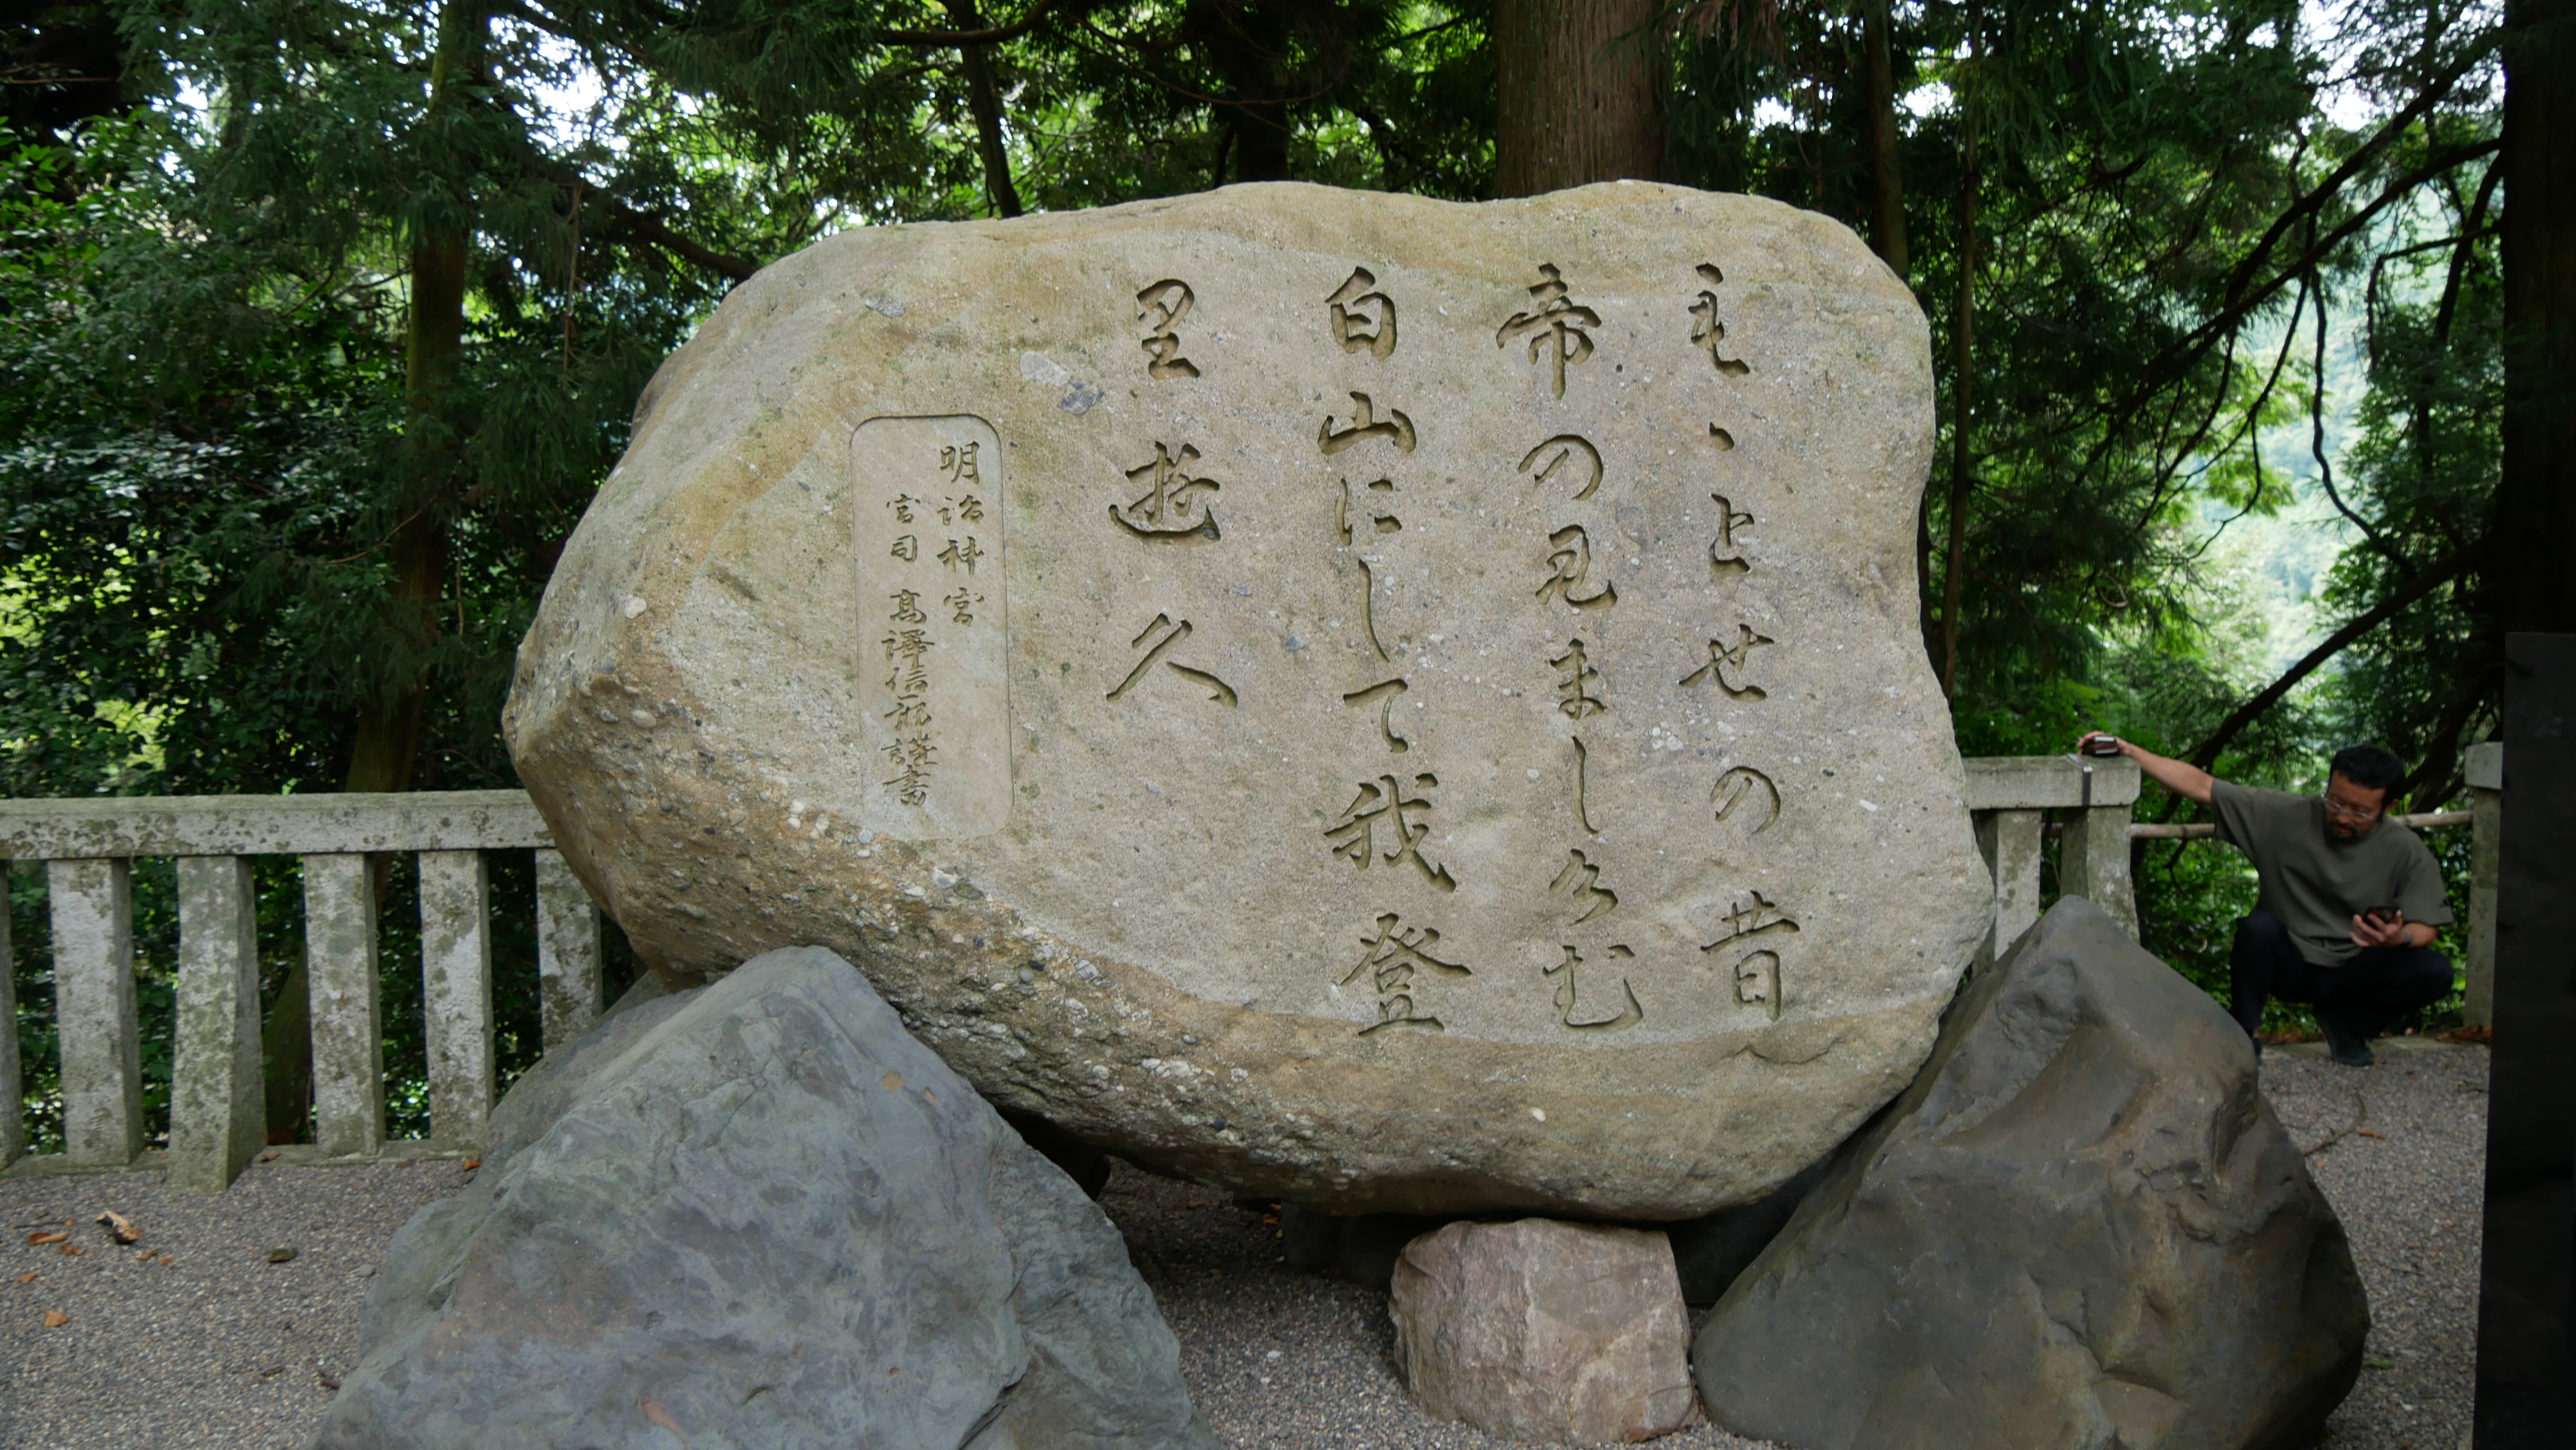 毛ゝとせの昔
帝の見ましけむ
白山にして我登
里遊久
明治神宮
宮司 髙澤信一郎謹書